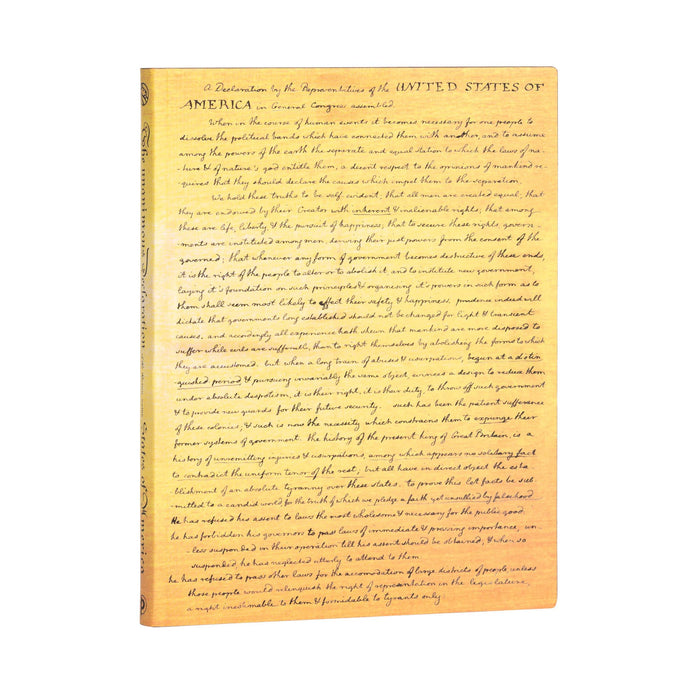 A Declaration by the Representatives of the UNITED STATES OF
AMERICA in General Congress assembled.
When in the course of human events it becomes necessary for one people to
dissolve the political bands which have connected them with another, and to assume
among the powers of the earth the separate and equal station to which the laws of na-
ture & of nature's god entitle them, a decent respect to the opinions of mankind re-
quires that they should declare the causes which impel them to the separation.
We hold these truths to be self evident; that all men are created equal; that
they are endowed by their Creator with inherent & inalienable rights; that among
these are life, liberty, & the pursuit of happiness; that to secure these rights, govern-
ments are instituted among men, deriving their just powers from the consent of the
governed; that whenever any form of government becomes destructive of these ends,
it is the right of the people to alter or to abolish it and to institute new government,
laying it's foundation on such principles & organising it's powers in such form as to
them shall seem most likely to effect their safety & happiness. prudence indeed will
dictate that governments long established should not be changed for light & transient
causes. and accordingly all experience hath shewn that mankind are more disposed to
suffer while evils are sufferable, than to right themselves by abolishing the forms to which
they are accustomed. but when a long train of abuses & usurpations, begun at a distin
guished period & pursuing invariably the same object, evinces a design to reduce them
under absolute despotism, it is their right, it is their duty, to throw off such government
& to provide new guards for their future security. such has been the patient sufferance
of these colonies; & such is now the necessity which constrains them to expunge their
former systems of government. The history of the present king of Great Britain, is a
history of unremitting injuries & usurpations, among which appears no solitary fact
to contradict the uniform tenor of the rest; but all have in direct object the esta-
blishment of an absolute tyranny over these states. to prove this let facts be sub-
mitted to a candid world for the truth of which we pledge a faith yet unsullied by falsehood.
He has refused his assent to laws the most wholesome & necessary for the public good.
he has forbidden his governors to pass laws of immediate & pressing importance, un-
less suspended in their operation till his assent should be obtained; & when so
suspended he has neglected utterly to attend to them
he has refused to pass other laws for the accomodation of large districts of people unless
those people would relinquish the right of representation in the legislature,
a right inestimable to them & formidable to tyrants only.
The unanimous Declaration
States of America